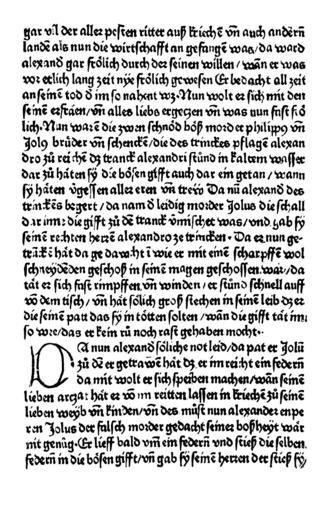 gar vil der aller pesten ritter auß kriechē vñ auch andern
landē als nun die wirtschafft an gefangē was/da ward
alexand gar frölich durch der seinen willen/wan er was
vor etlich lang zeit nye frölich gewesen Er bedacht all zeit
an seinē tod d im so nahent wz. Nun wolt er sich mit den
seinē erstaen/vñ alles liebs ergeczen vñ was nun fast frö
lich. Nun warē die zwen schnöd böß mörder philippꝰ vñ
Jolꝰ brüder vñ schencken/die des trinckēs pflagē alexan
dro zů reichē dz tranck alexandri stůnd in kaltem wasser
dar zů hāten sy die bösen gifft auch dar ein getan/wann
sy hāten vgessen aller eren vñ trew Da nū alexand des
trinckēs begert/da nam d leidig mörder Jolus die schall
d ar inn: die gifft zů dē tranck vmischet was/und gab sy
seinē rechten herrē alexandro ze trincken. Da er nun ge-
trūckē hāt da ge dawcht ī wie er mit einē scharpffē wol
schneydēden geschoß in seinē magen geschossen war/da
tāt er sich fast rimpffen vñ winden/er stůnd schnell auff
vō dem tisch/vñ hāt sölich groß stechen in seinē leib dz er
die seinē patt das sy in tötten solten/wān die gifft tāt im
so wee/das er kein rů noch rast gehaben mocht.
DA nun alexand söliche not leid/da pat er Jolū
zů dē er getrawen hāt dz er im reicht ein federn
da mit wolt er sich speiben machen/wān seinē
lieben arczat het er vō im reitten lassen in kriechē zů seinē
lieben weyb vñ kinden/vñ des můst nun alexander enpe
ren Jolus der falsch mörder gedacht seiner boßheyt wār
nit genůg. Er lieff bald vm ein federn vnd stieß die selben
federn in die bösen gifft/vñ gab sy seinē herren der stieß sy